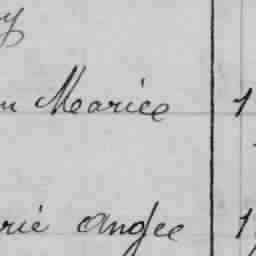 y
u Mariee 1
rie Angee 1